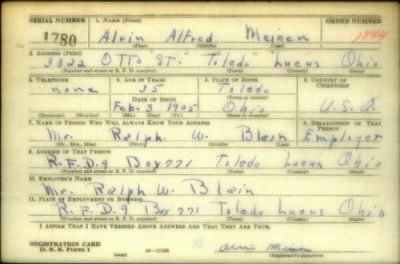 SERIAL NUMBER 1. NAME (Print) ORDER NUMBER
1780 Alvin Alfred Meinen 1844
(First) (Middle) (Last)
2. ADDRESS (Print)
3322 Otto St. Toledo Lucus Ohio
(Number and street or R. F. D. number) (Town) (County) (State)
3. TELEPHONE 4. AGE IN YEARS 5. PLACE OF BIRTH 6. COUNTRY OF CITIZENSHIP
none 35 Toledo
DATE OF BIRTH (Town or county)
Feb. 3 1905 Ohio U.S.A.
(Exchange) (Number) (Mo.) (Day) (Yr.) (State or country)
7. NAME OF PERSON WHO WILL ALWAYS KNOW YOUR ADDRESS 8. RELATIONSHIP OF THAT PERSON
Mr. Ralph W. Blain Employer
(Mr., Mrs., Miss) (First) (Middle) (Last)
9. ADDRESS OF THAT PERSON
R.F.D.9 Box 771 Toledo Lucus Ohio
(Number and street or R. F. D. number) (Town) (County) (State)
10. EMPLOYER'S NAME
Mr. Ralph W. Blain
11. PLACE OF EMPLOYMENT OR BUSINESS
R.F.D.9 Box 771 Toledo Lucus Ohio
(Number and street or R. F. D. number) (Town) (County) (State)
I AFFIRM THAT I HAVE VERIFIED ABOVE ANSWERS AND THAT THEY ARE TRUE.
REGISTRATION CARD
D. S. S. FORM 1 (over) (Registrant's signature)